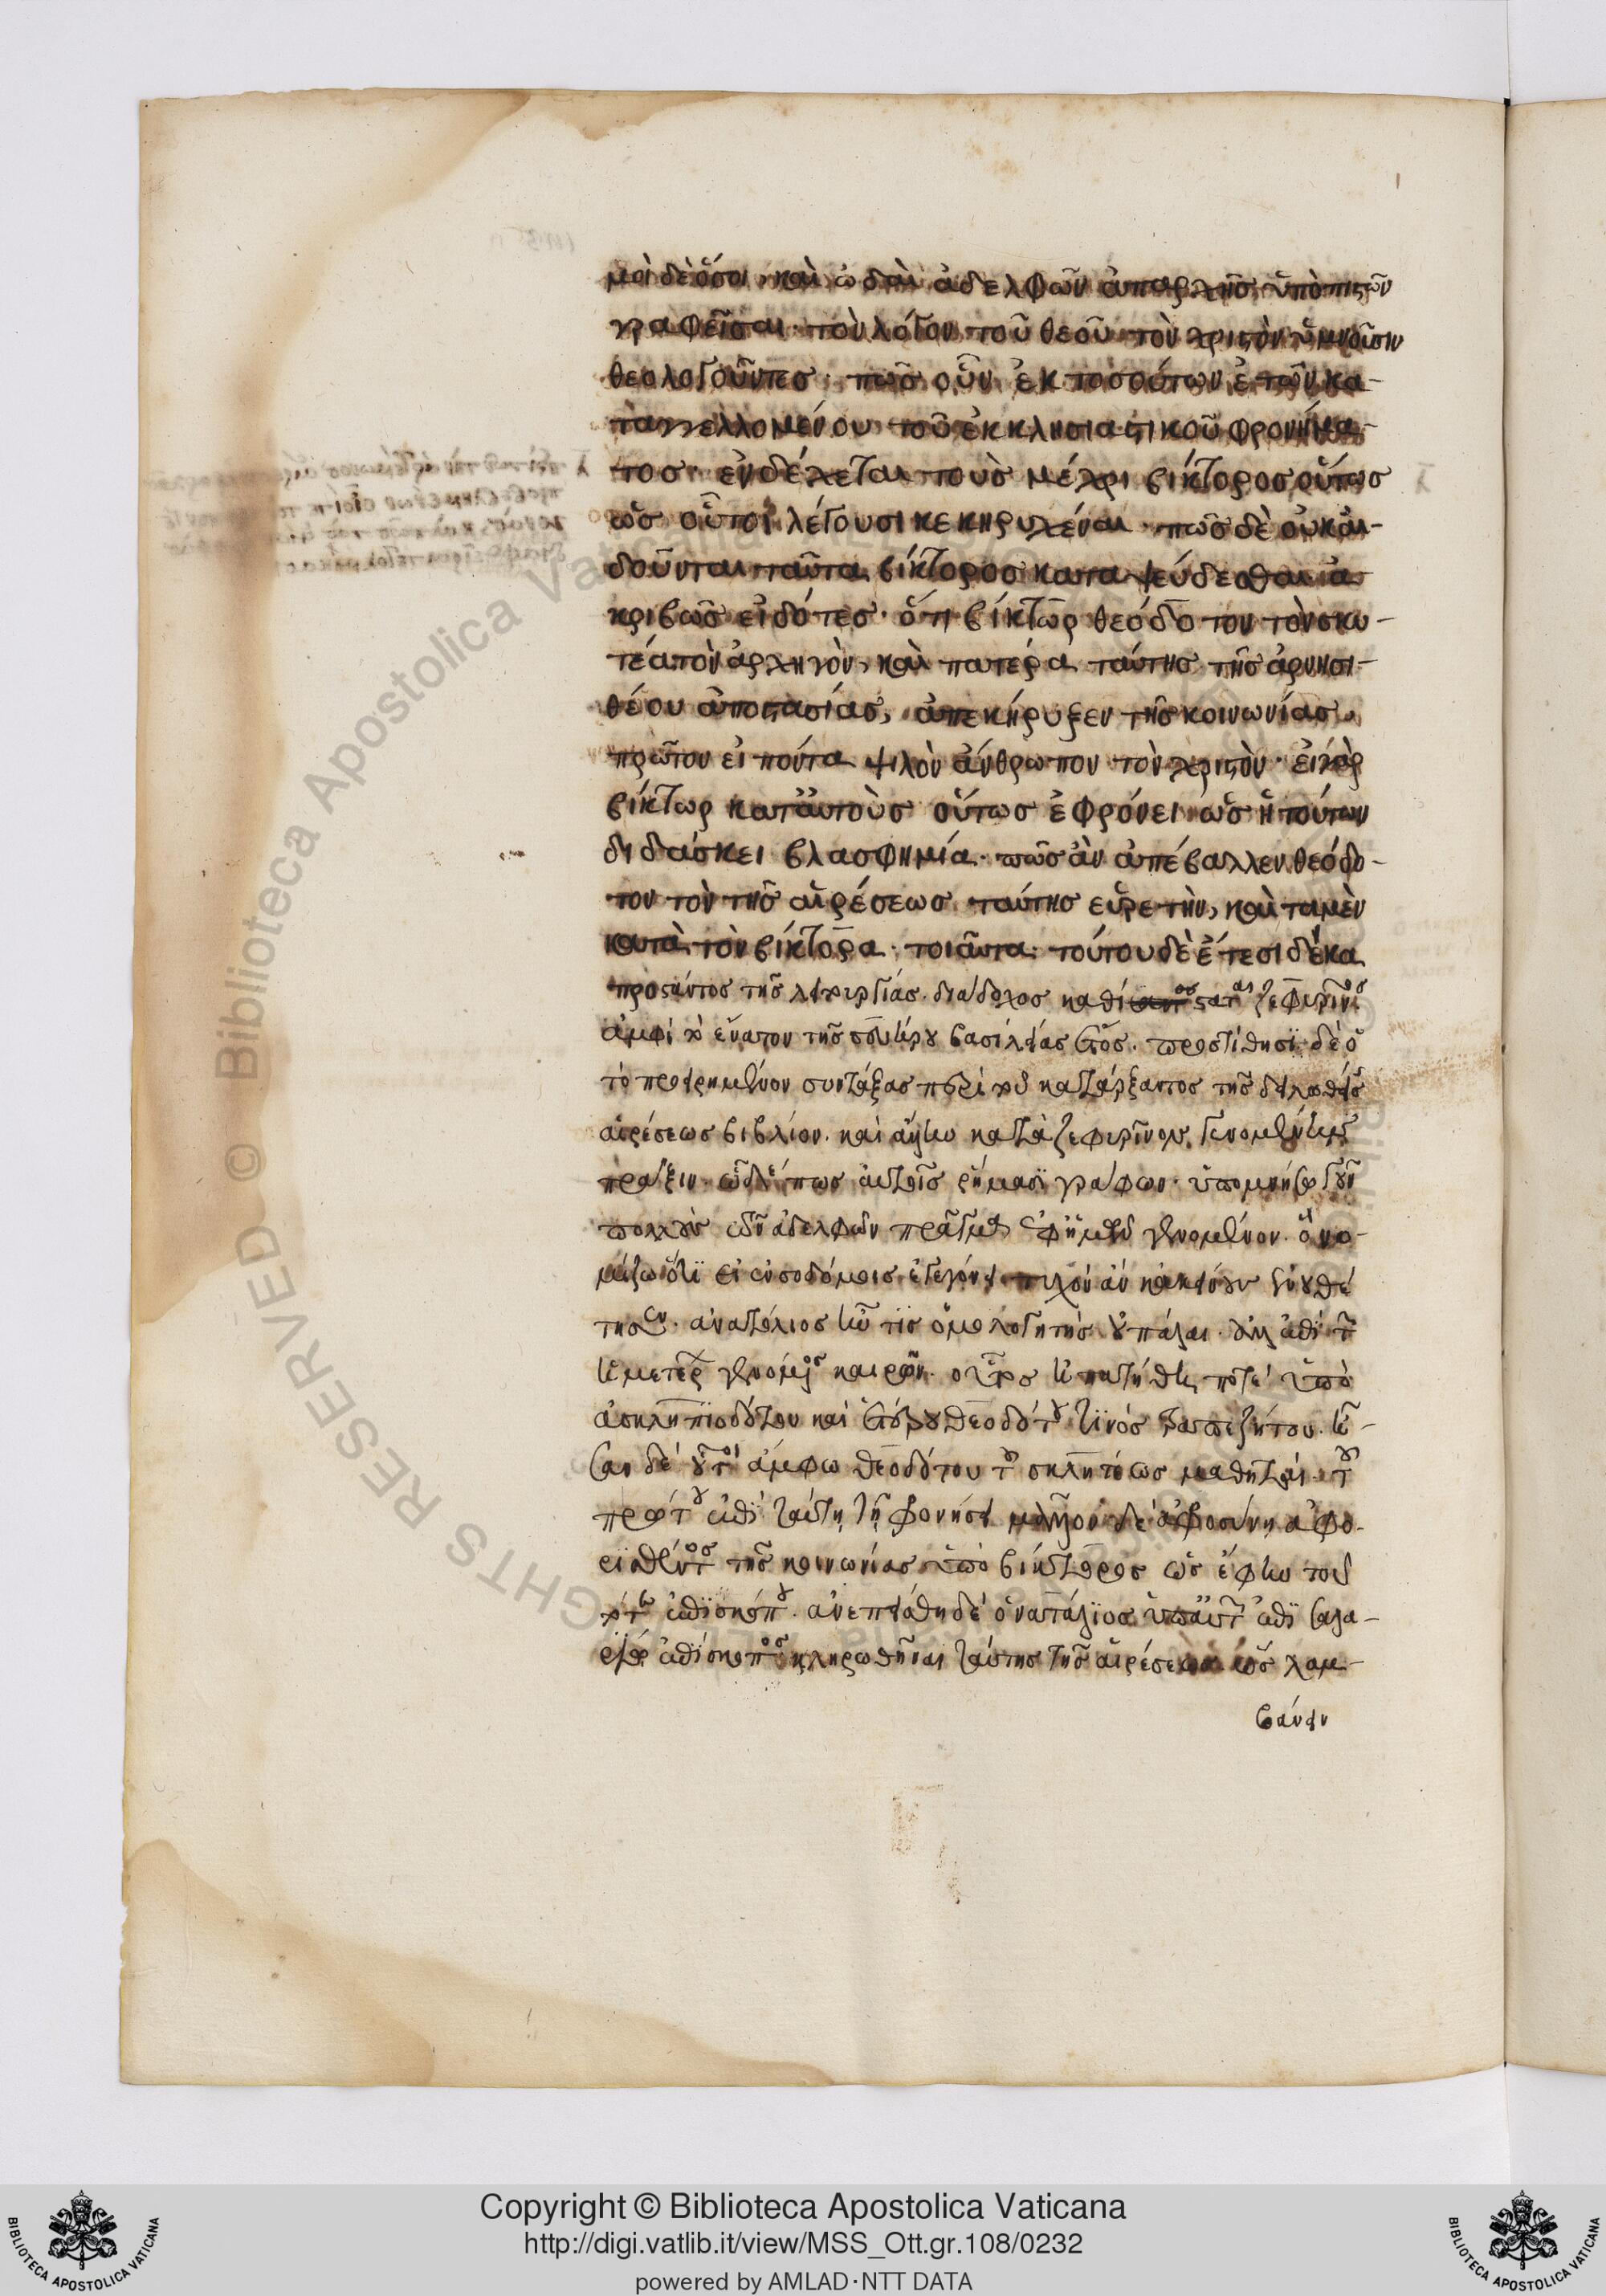 μοὶ δὲ ὅσοι, καὶ ὠδαὶ ἀδελφῶν ἀπαρχῆς ὑπὸ πιστῶν
γραφεῖσαι. τὸν λόγον τοῦ θεοῦ τὸν χριστὸν ὑμνοῦσιν
θεολογοῦντες. πῶς οὖν ἐκ τοσούτων ἐτῶν κα-
ταγγελλομένου τοῦ ἐκκλησιαστικοῦ φρονήμα-
τος. ἐνδέχεται τοὺς μέχρι βίκτορος οὕτως
ὡς οὗτοι λέγουσι κεκηρυχέναι. πῶς δὲ οὐκ αἰ-
δοῦνται ταῦτα βίκτορος καταψεύδεσθαι ἀ
κριβῶς εἰδότες. ὅτι βίκτωρ θεόδοτον τὸν σκυ-
τέα τὸν ἀρχηγὸν, καὶ πατέρα ταύτης τῆς ἀρνησι-
θέου ἀποστασίας, ἀπεκήρυξεν τῆς κοινωνίας,
πρῶτον εἰπόντα ψιλὸν ἄνθρωπον τὸν χριστὸν. εἰ γὰρ
βίκτωρ κατ' αὐτοὺς οὕτως ἐφρόνει ὡς ἡ τούτων
διδάσκει βλασφημία. πῶς ἂν ἀπέβαλλεν θεόδο-
τον τὸν τῆς αἱρέσεως ταύτης εὑρετὴν, καὶ τὰ μὲν
κατὰ τὸν βίκτορα. τοιαῦτα. τούτου δὲ ἔτεσι δέκα
προστάντος τῆς λειτουργίας. διάδοχος καθίσταται ζεφυρῖνος
ἀμφὶ τὸ ἔνατον τῆς σευήρου βασιλείας ἔτος. προστίθησι δὲ ὁ
τὸ προειρημένον συντάξας περὶ τοῦ κατάρξαντος τῆς δηλωθείσης
αἱρέσεως βιβλίον. καὶ ἄλλην κατὰ ζεφυρῖνον γενομένην
πρᾶξιν ὧδέ πως αὐτοῖς ῥήμασι γράφων. ὑπομνήσω γοῦν
πολλοὺς τῶν ἀδελφῶν πρᾶγμα ἐφ' ἡμῶν γενόμενον. ὃ νο-
μίζω ὅτι εἰ ἐν σοδόμοις ἐγεγόνει τυχὸν ἂν κἀκείνους ἐνουθέ
τησεν. νατάλιος ἦν τις ὁμολογητὴς οὐ πάλαι. ἀλλ' ἐπὶ τῶν
ἡμετέρων γενόμενος καιρῶν. οὗτος ἠπατήθη ποτὲ ὑπὸ
ἀσκληπιοδότου καὶ ἑτέρου θεοδότου τινὸς τραπεζίτου. ἦ-
σαν δὲ οὗτοι ἄμφω θεοδότου τοῦ σκυτέως μαθηταὶ τοῦ
πρώτου ἐπὶ ταύτῃ τῇ φρονήσει μᾶλλον δὲ ἀφροσύνῃ ἀφο-
ρισθέντος τῆς κοινωνίας ὑπὸ βίκτορος ὡς ἔφην τοῦ
τότε ἐπισκόπου. ἀνεπείσθη δὲ ὁ νατάλιος ὑπ' αὐτῶν ἐπὶ σαλα-
ρίῳ ἐπίσκοπος κληρωθῆναι ταύτης τῆς αἱρέσεως ὡς λαμ-
βάνειν
Copyright © Biblioteca Apostolica Vaticana
http://digi.vatlib.it/view/MSS_Ott.gr.108/0232
powered by AMLAD·NTT DATA
BIBLIOTECA APOSTOLICA VATICANA
BIBLIOTECA APOSTOLICA VATICANA